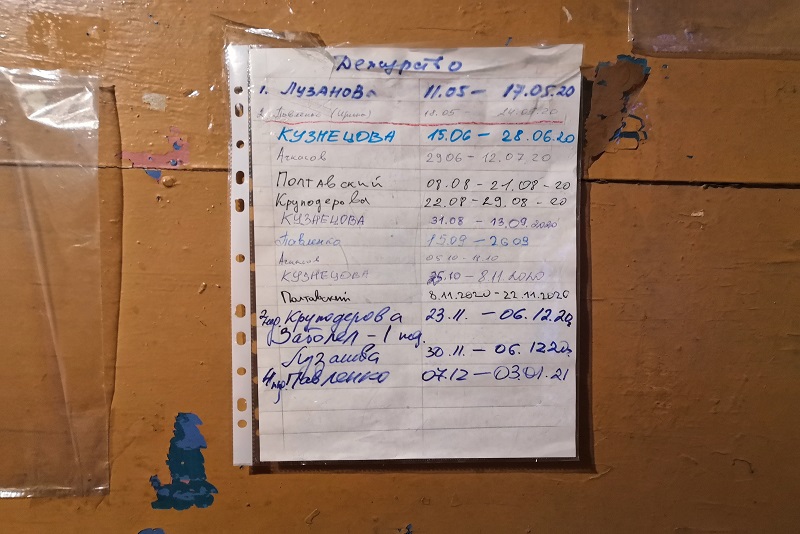 Дежурство
1. ЛУЗАНОВа 11.05 – 17.05.20
2. Павленко (Ирина) 18.05 24.05.20
КУЗНЕЦОВА 15.06 – 28.06.20
Ачкасов 29.06 – 12.07.20
Полтавский 08.08 – 21.08 – 20
Круподерова 22.08 – 29.08 – 20
КУЗНЕЦОВА 31.08 – 13.09.2020
Павленко 15.09 – 26.09
Ачкасов 05.10 –
КУЗНЕЦОВА 25.10 – 8.11.2020
Полтавский 8.11.2020 – 22.11.2020
2 нед. Круподерова 23.11. – 06.12.20
Заболел – 1 нед.
Лузанова 30.11. – 06.12.20
4 нед. Павленко 07.12 – 03.01.21